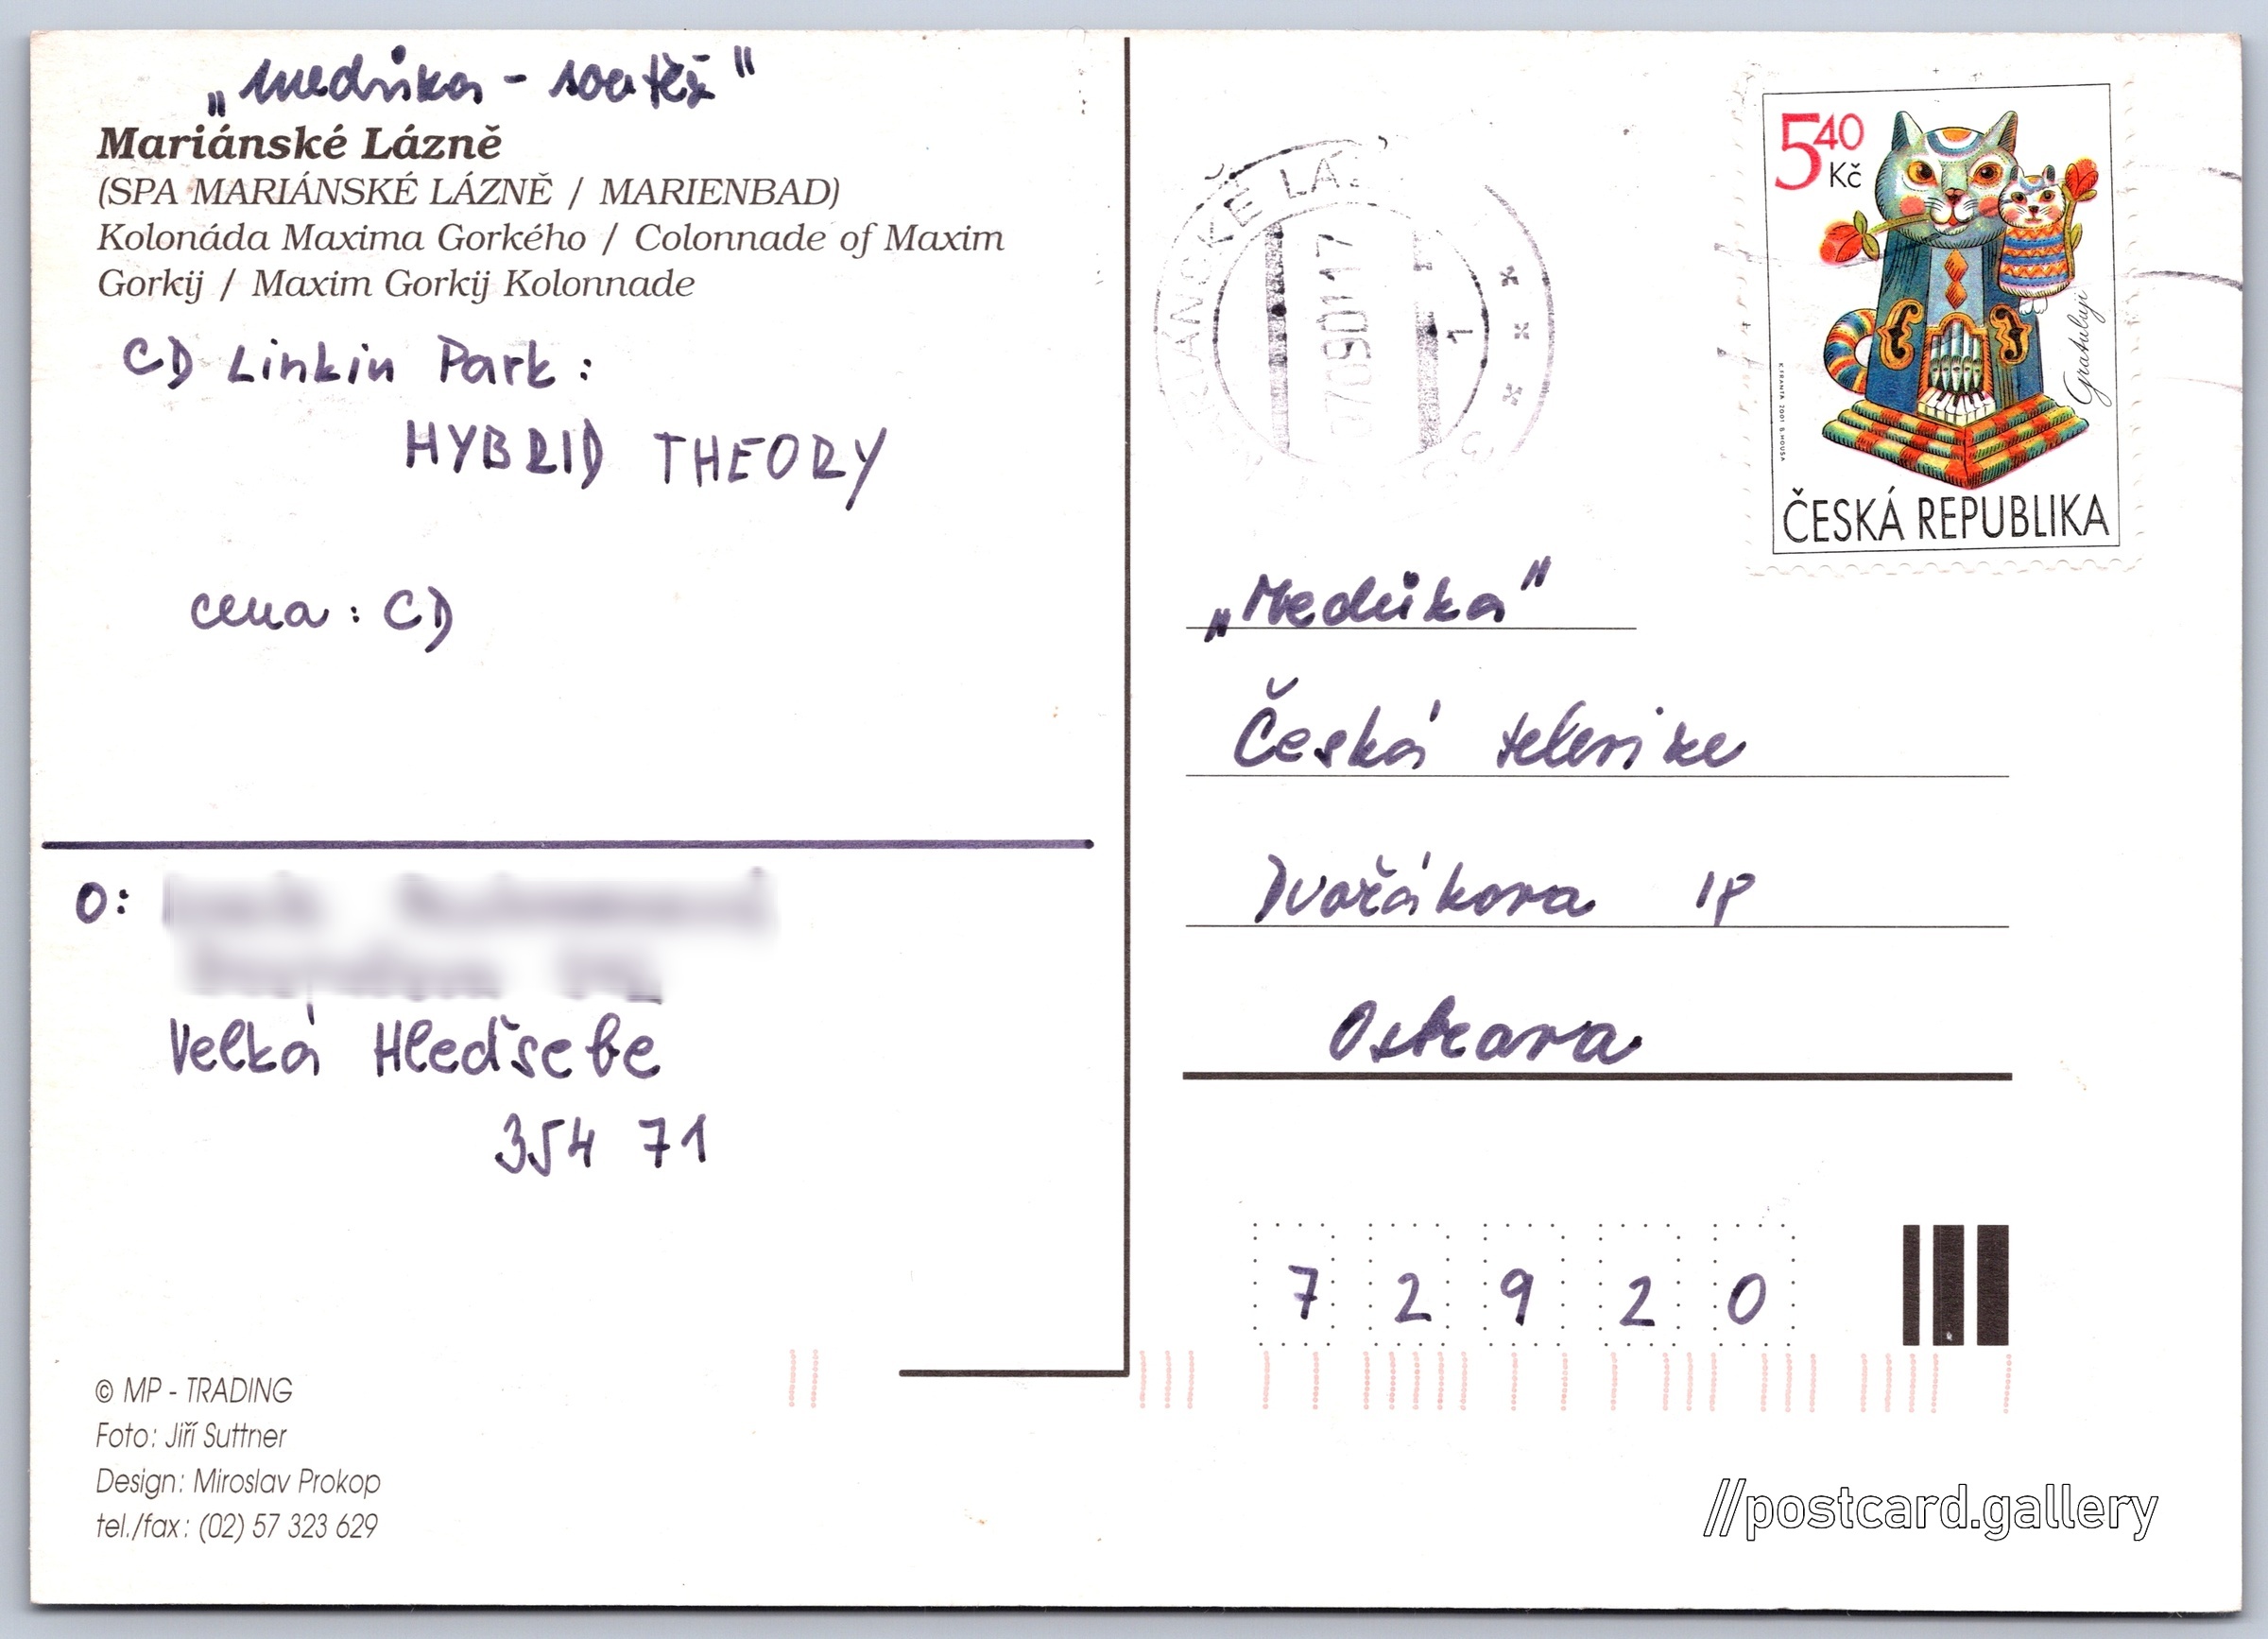 „Medúka - soutěž"
Mariánské Lázně
(SPA MARIÁNSKÉ LÁZNĚ / MARIENBAD)
Kolonáda Maxima Gorkého / Colonnade of Maxim
Gorkij / Maxim Gorkij Kolonnade
CD Linkin Park:
HYBRID THEORY
cena: CD
O:
Velká Hleďsebe
354 71
© MP - TRADING
Foto: Jiří Suttner
Design: Miroslav Prokop
tel./fax: (02) 57 323 629
1
5 40
Kč
Gratuluji
K. FRANTA 2001 B. HOUSA
ČESKÁ REPUBLIKA
„Medúka"
Česká televize
Dvořákova 18
Ostrava
7 2 9 2 0
//postcard.gallery